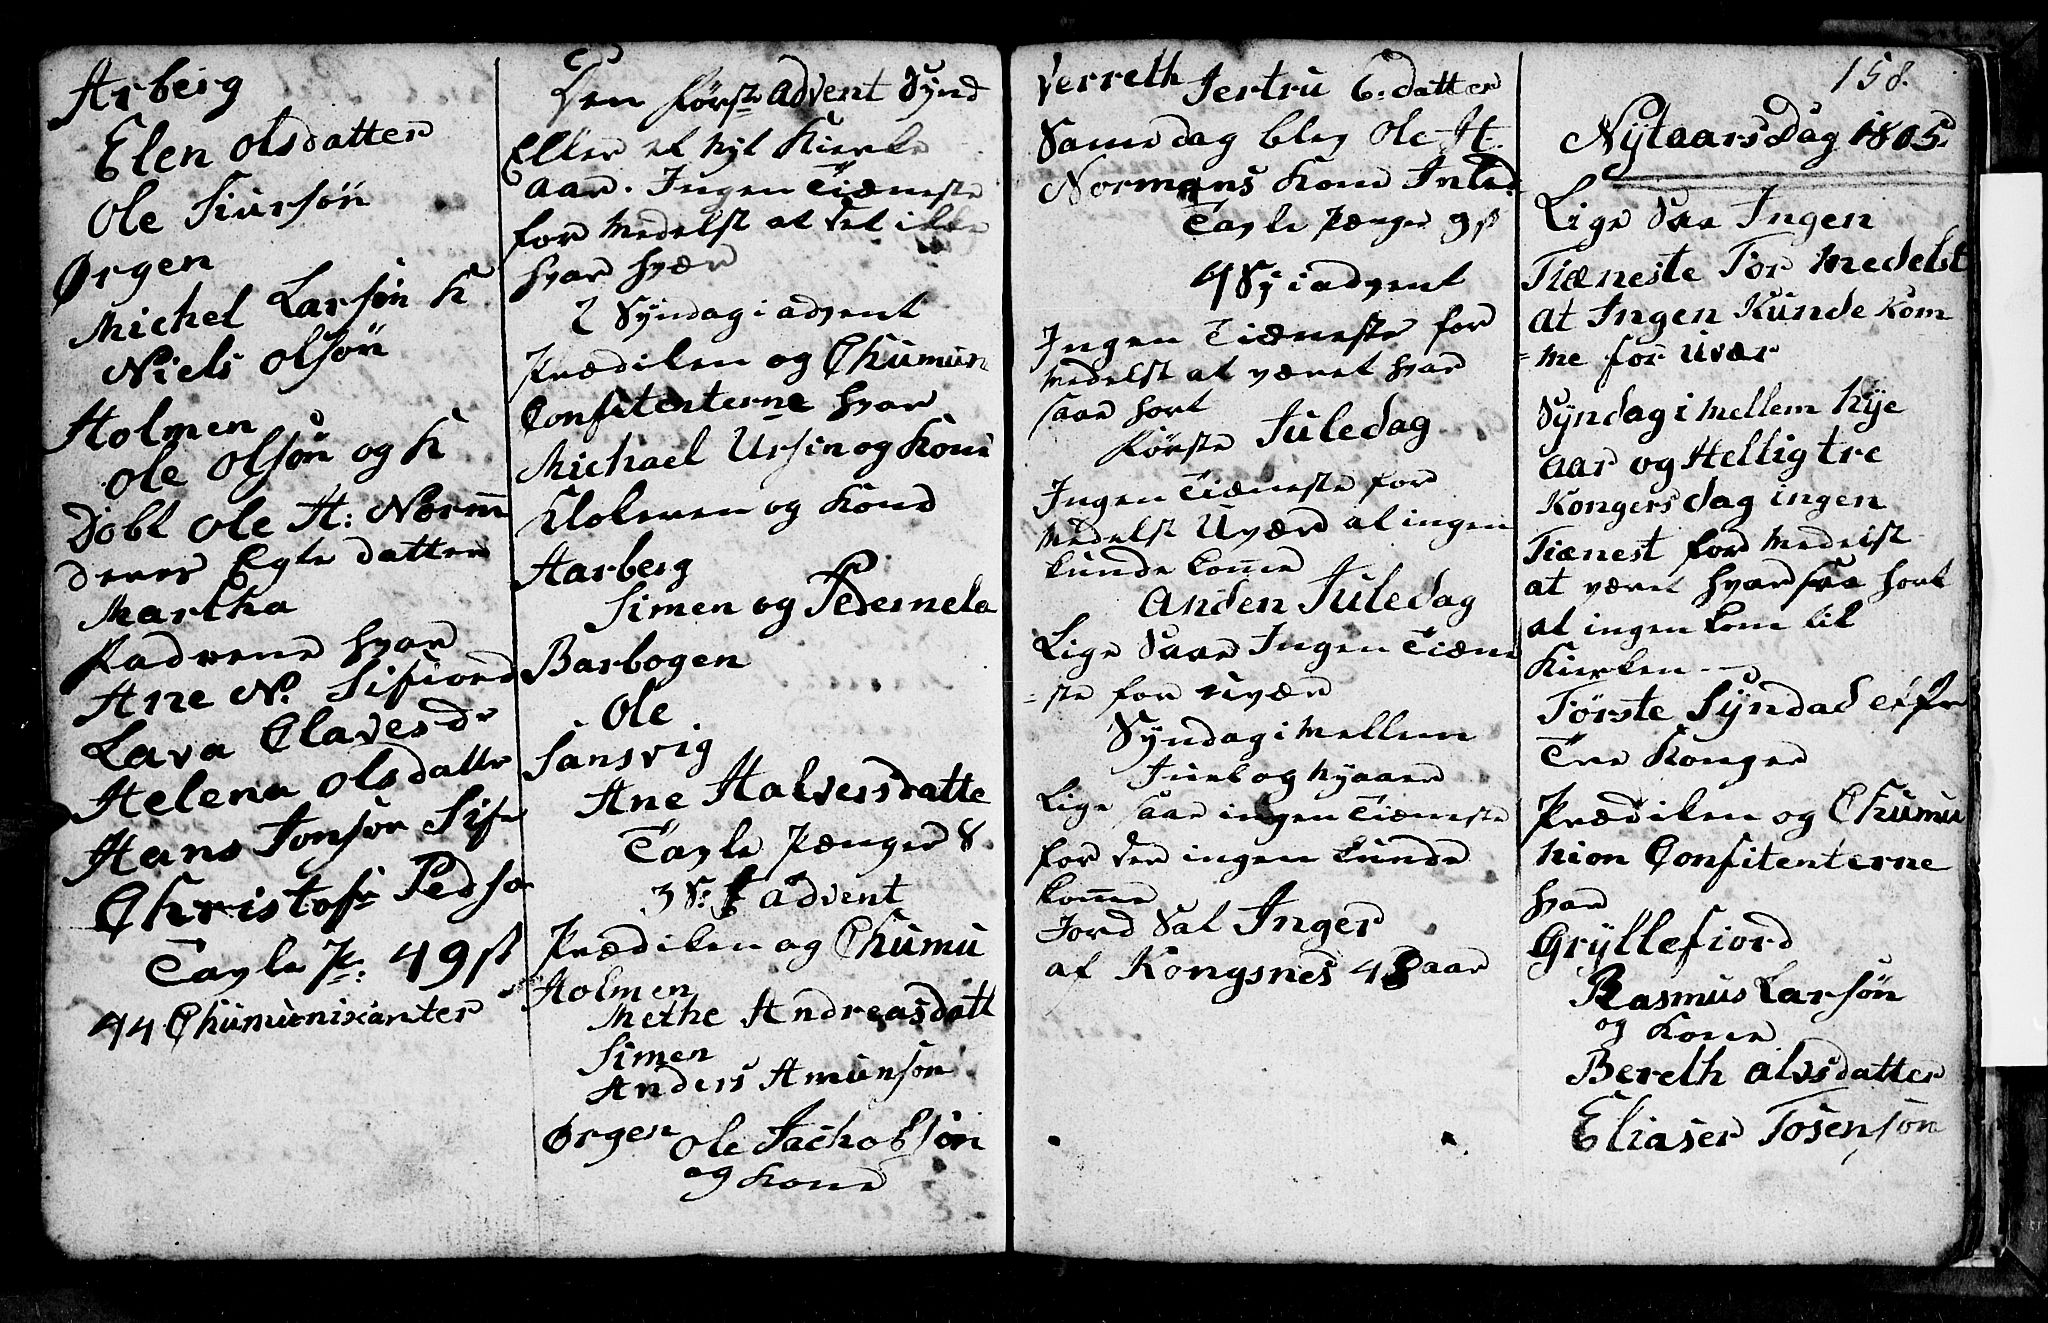 Arberg
Elen Olsdatter
Ole Siursøn
Ørgen
Michel Larsøn K
Niels Olsøn
Holmen
Ole Olsøn og K
Døbt Ole H: Norm
deres Egte datter
Martha
Fadrene hvar
Ane N. Sifiord
Lava Clavesdr
Helena Olsdattr
Hans Jonsøn Sif
Christofr Pedsø
Tavle P: 49 ß
44 Chumunicanter
Den Første Advent Synd
Eller et Nyt Kierke
Aar. Ingen Tiæneste
for Medelst at det ikke
hvar hvær
2 Syndag i advent
Prædiken og Chumun
Confitenterne hvar
Michael Ursin og Kone
Klokeren og Kone
Aarberg
Simen og Pedernela
Barbogen
Ole
Sansvig
Ane Halversdatte
Tavle Pænger 8
3 S: I advent
Prædiken og Chumu
Holmen
Methe Andreasdatt
Simen
Anders Amunsøn
Ørgen Ole Jachobsøn
og Kone
Verreth Jertru C: datter
Same dag blev Ole H.
Normans Kone Inled:
Tavle Pænger 9 ß
4 Sy i advent
Ingen Tiæneste for
Medelst at været hvar
saa hort
Første Juledag
Ingen Tiæneste for
Medelst Uvær at ingen
kunde kome
Anden Juledag
Lige Saa Ingen Tiæne
=ste for uvær
Syndag i Mellem
Juel og Nyaar
Lige saa ingen Tiæneste
for der ingen kunde
kome
Jord Sat Inger
af Kongsnes 48 aar
158.
Nytaars Dag 1805
Lige Saa Ingen
Tiæneste For Medelst
at Ingen Kunde kom
=me for uvær
Syndag i Mellem Nye
aar og Hellig tre
Kongers dag ingen
Tiænest for Medelst
at været hvar saa hort
at ingen kom til
Kierken
Første Syndad efter
Tre Konger
Prædiken og Chumu
nion Confitenterne
hvar
Gryllefiord
Rasmus Larsøn
og Kone
Bereth Alvsdatter
Eliaser Tosensøn